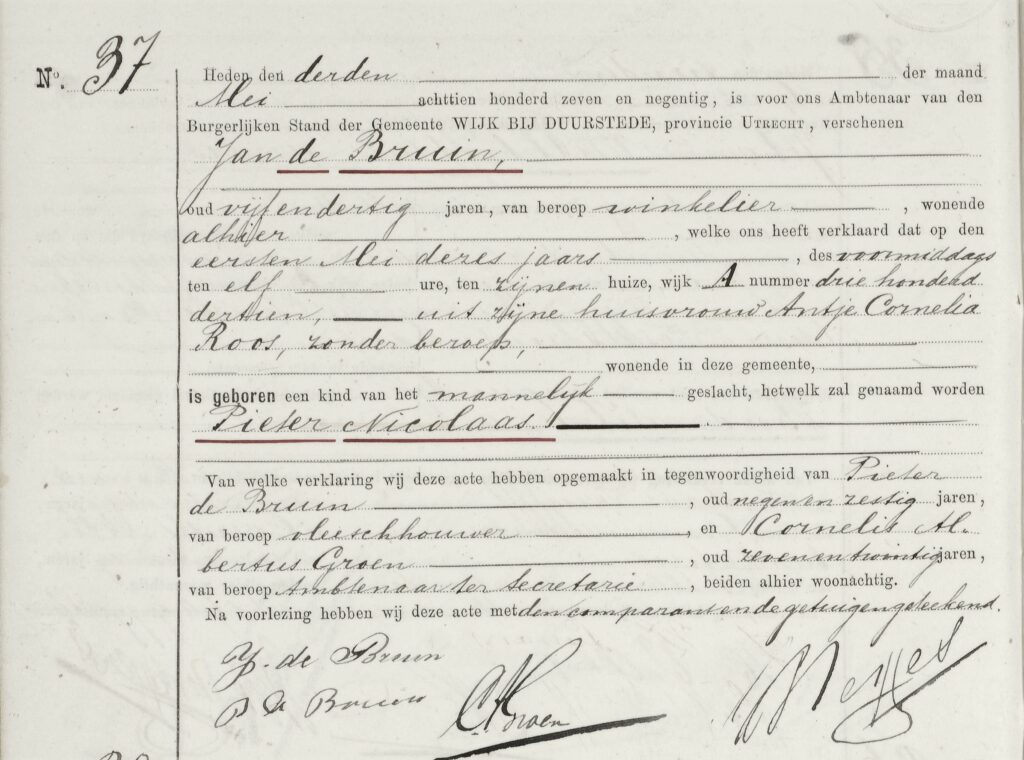 No. 37
Heden den derden der maand
Mei achttien honderd zeven en negentig, is voor ons Ambtenaar van den
Burgerlijken Stand der Gemeente WIJK BIJ DUURSTEDE, provincie UTRECHT, verschenen
Jan de Bruin,
oud vijfendertig jaren, van beroep winkelier, wonende
alhier, welke ons heeft verklaard dat op den
eersten Mei dezes jaars, des voormiddags
ten elf ure, ten zijnen huize, wijk A nummer drie honderd
dertien, uit zijne huisvrouw Antje Cornelia
Roos, zonder beroep,
wonende in deze gemeente,
is geboren een kind van het mannelijk geslacht, hetwelk zal genaamd worden
Pieter Nicolaas.
Van welke verklaring wij deze acte hebben opgemaakt in tegenwoordigheid van Pieter
de Bruin, oud negenen zestig jaren,
van beroep vleeschhouwer, en Cornelis Al-
bertus Groen, oud zevenentwintig jaren,
van beroep Ambtenaar ter Secretarie, beiden alhier woonachtig.
Na voorlezing hebben wij deze acte met den comparant en de getuigen geteekend.
J. de Bruin
P de Bruin
CAGroen